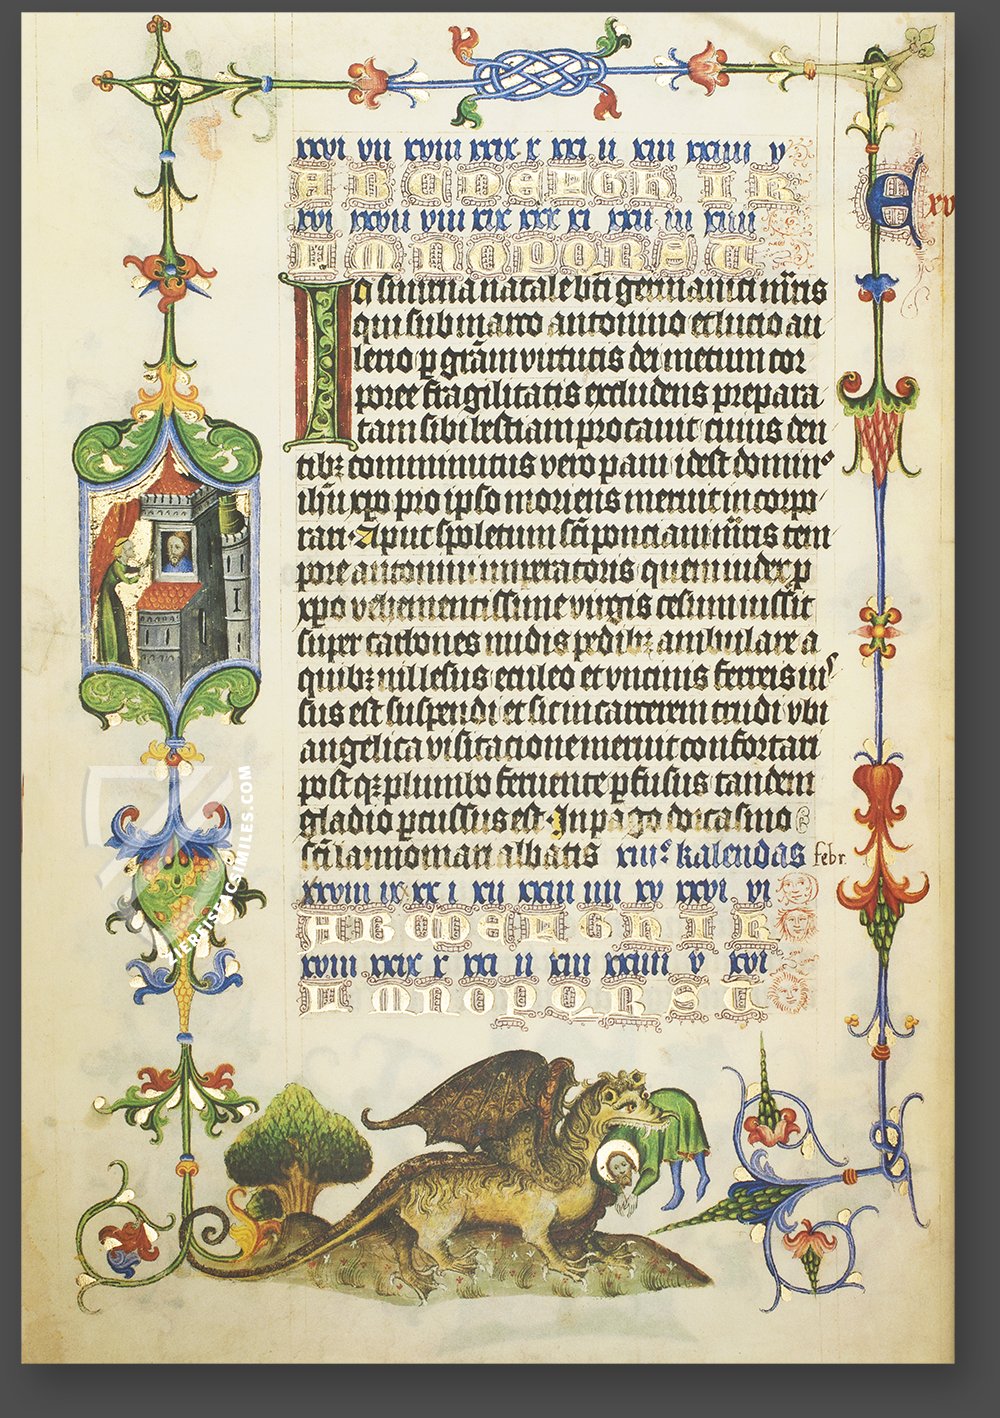 xxvi vii xviii xxix x xxi ii xiii xxiiii v
A B C D E F G H I K
xvi xxvii viii xix xxx xi xxii iii xiiii
L M N O P Q R S T
E xv
In smirna natale bti germanici mris
qui sub marco antonino et lucio au
lerio p gram virtutis dei metum cor
poree fragilitatis excludens prepara
tam sibi bestiam provocavit cuius den
tibz comminutus vero pani idest domino
ihu xpo pro ipso moriens meruit incorpo
rari. Aput spoletum sci ponciani mris tem
pore antonini imperatoris quem iudex p
xpo vehementissime virgis cesum iussit
super carbones nudis pedibz ambulare a
quibz illesus eculeo et uncinis ferreis ius
sus est suspendi et sic in carcerem trudi ubi
angelica visitacione meruit confortari
post qz plumbo fervente pfusus tandem
gladio pcussus est. In pago
sci lannomari abbatis xiiii° kalendas febr.
xxviii ix xx i xii xxiii iiii xv xxvi vi
A B C D E F G H I K
xviii xxix x xxi ii xiii xxiiii v xvi
L M N O P Q R S T
ZIEREISFACSIMILES.COM